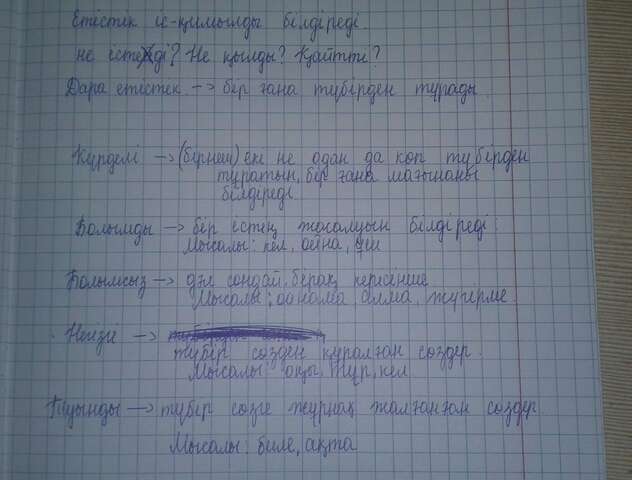 Етістік іс-қимылды білдіреді.
не істеді? Не қылды? Қайтті?
Дара етістек → бір ғана түбірден тұрады.
Күрделі → (бірнеше) екі не одан да көп түбірден
тұратын, бір ғана мағынаны
білдіреді
Болымды → бір істің жасалуын білдіреді:
Мысалы: кел, ойна, іш
Болымсыз → дәл сондай, бірақ керісінше
Мысалы: ойнама алма, жүгірме.
Негізгі →
түбір сөзден құралған сөздер.
Мысалы: оқы, тұр, кел
Туынды → түбір сөзге жұрнақ жалғанған сөздер
Мысалы: биле, ақта